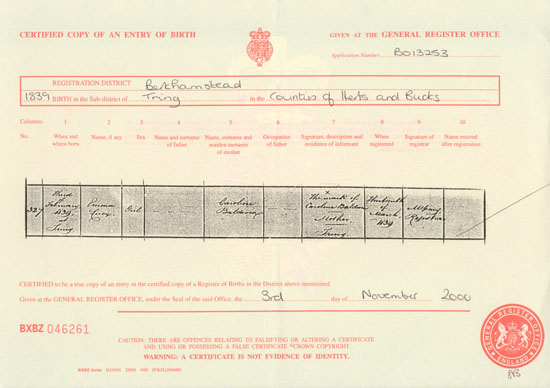 CERTIFIED COPY OF AN ENTRY OF BIRTH
GIVEN AT THE GENERAL REGISTER OFFICE
Application Number BO13253
REGISTRATION DISTRICT Berkhamstead
1839 BIRTH in the Sub-district of Tring in the Counties of Herts and Bucks
Columns: 1 2 3 4 5 6 7 8 9 10
No. When and where born Name, if any Sex Name and surname of father Name, surname and maiden surname of mother Occupation of father Signature, description and residence of informant When registered Signature of registrar Name entered after registration
327 Third of February 1839 Tring Emma Girl Caroline The mark of Caroline Mother Tring of March 1839 Registrar
CERTIFIED to be a true copy of an entry in the certified copy of a Register of Births in the District above mentioned.
Given at the GENERAL REGISTER OFFICE, under the Seal of the said Office, the 3rd day of November 2000
BXBZ 046261
CAUTION: THERE ARE OFFENCES RELATING TO FALSIFYING OR ALTERING A CERTIFICATE
AND USING OR POSSESSING A FALSE CERTIFICATE ©CROWN COPYRIGHT
WARNING: A CERTIFICATE IS NOT EVIDENCE OF IDENTITY.
BXBZ Series
GENERAL REGISTER OFFICE
ENGLAND